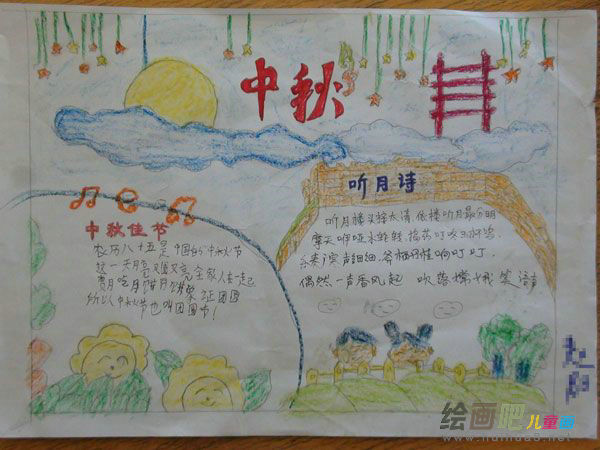 中秋
听月诗
听月楼头接太清 依楼听月最分明
摩天咿哑冰轮转 捣药叮咚玉杵鸣
乐奏广寒声细细 斧柯丹桂响叮叮
偶然一声香风起 吹落嫦娥笑语声
中秋佳节
农历八十五是中国的中秋节
这一天月亮又值又亮 全家人在一起
赏月吃月饼
所以中秋节也叫团圆节！
绘画吧儿童画